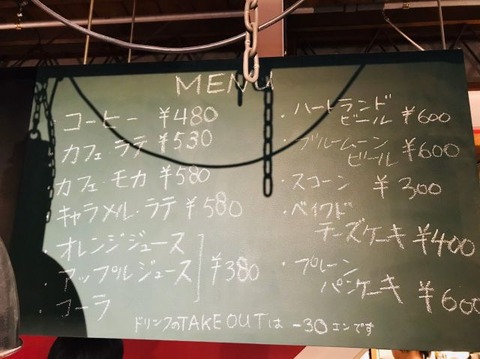 MENU
・コーヒー ¥480
・カフェ・ラテ ¥530
・カフェ・モカ ¥580
・キャラメル・ラテ ¥580
・オレンジジュース
・アップルジュース ¥380
・コーラ
・ハートランド
ビール ¥600
・ブルームーン
ビール ¥600
・スコーン ¥300
・ベイクド
チーズケーキ ¥400
・プレーン
パンケーキ ¥600
ドリンクのTAKE OUTは -30エンです